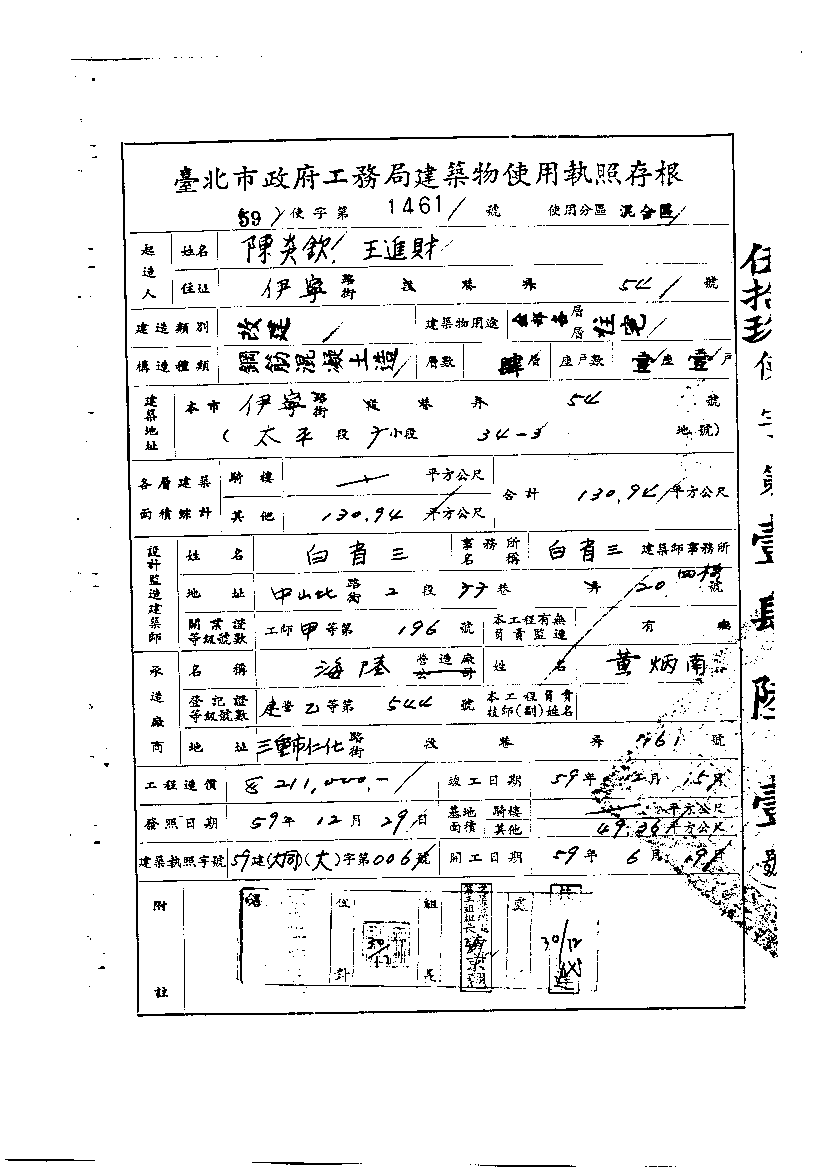 臺北市政府工務局建築物使用執照存根
(59)使字第 1461 號 使用分區 混合區
起造人 姓名 陳炎欽 王進財
住址 伊寧路街 段 巷 弄 54 號
建造類別 改建 建築物用途 層層 住宅
構造種類 鋼筋混凝土造 層數 肆層 座戶數 壹座 壹戶
建築地址 本市 伊寧路街 段 巷 弄 54 號
(太平段 小段 34-3 地號)
各層建築面積綜計 騎樓 平方公尺 合計 130.94 平方公尺
其他 130.94 平方公尺
設計監造建築師 姓名 白省三 事務所名稱 白省三 建築師事務所
地址 中山北路街 2 段 77 巷 弄 20 號 四樓
開業證等級號數 工師甲等第 196 號 本工程有無負責監造 有 無
承造廠商 名稱 海陸 營造廠公司 姓名 黃炳南
登記證等級號數 建營乙等第 544 號 本工程負責技師(副)姓名
地址 三重市仁化路街 段 巷 弄 161 號
工程造價 211,000,- 竣工日期 59年 12月 15日
發照日期 59年 12月 29日 基地面積 騎樓 平方公尺
其他 49.36 平方公尺
建築執照字號 59建(大同)(大)字第006號 開工日期 59年 6月 19日
附註
位 組 長
30/12
第工組組長
30/12
伍拾玖使字第壹肆陸壹號